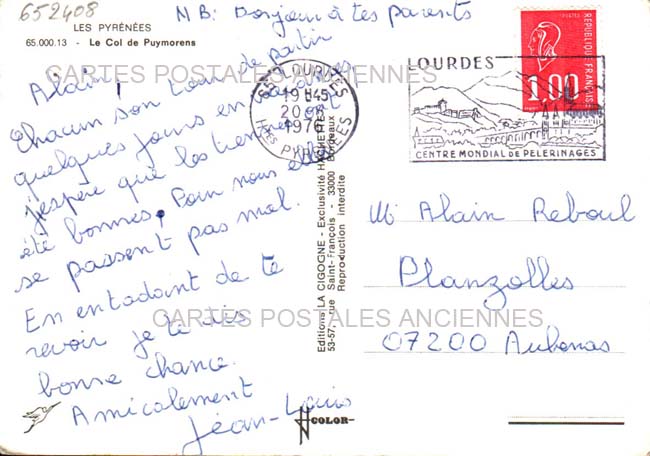 652408
N B: Bonjour à tes parents
LES PYRÉNÉES
65.000.13 - Le Col de Puymorens
Alain,
Chacun son tour de partir
quelques jours en vacances
j'espère que les tiennes ont
été bonnes. Pour nous elles
se passent pas mal.
En entendant de te
revoir je te dis
bonne chance.
Amicalement
Jean-Louis
65 LOURDES
19H45
20-8
1976
HTES PYRENEES
LOURDES
CENTRE MONDIAL DE PÈLERINAGES
REPUBLIQUE FRANÇAISE
POSTES
1.00
Editions LA CIGOGNE - Exclusivité HACHETTE
53-57, rue Saint-François - 33000 Bordeaux
Reproduction interdite
Mr Alain Reboul
Planzolles
07200 Aubenas
COLOR
CARTES POSTALES ANCIENNES
CARTES POSTALES ANCIENNES